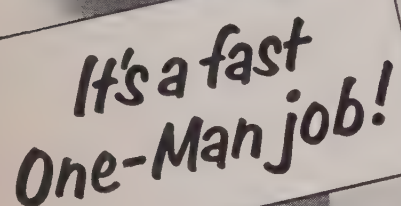 It's a fast
One-Man job!